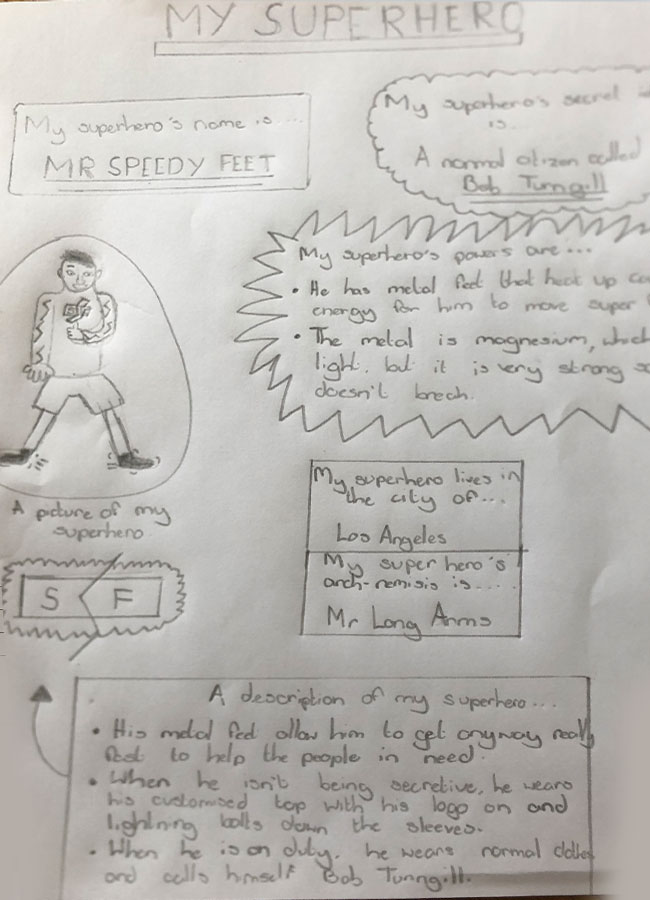 MY SUPERHERO
My superhero's name is....
MR SPEEDY FEET
My superhero's secret
is...
A normal citizen called
Bob Turngill
My superhero's powers are...
• He has metal feet that heat up
energy for him to move super
• The metal is magnesium, which
light, but it is very strong so
doesn't break.
A picture of my
superhero
S F
My superhero lives in
the city of...
Los Angeles
My super hero's
arch-nemisis is....
Mr Long Arms
A description of my superhero...
• His metal feet allow him to get anyway really
fast to help the people in need.
• When he isn't being secretive, he wears
his customised top with his logo on and
lightning bolts down the sleeves.
• When he is on duty, he wears normal clothes
and calls himself Bob Turngill.